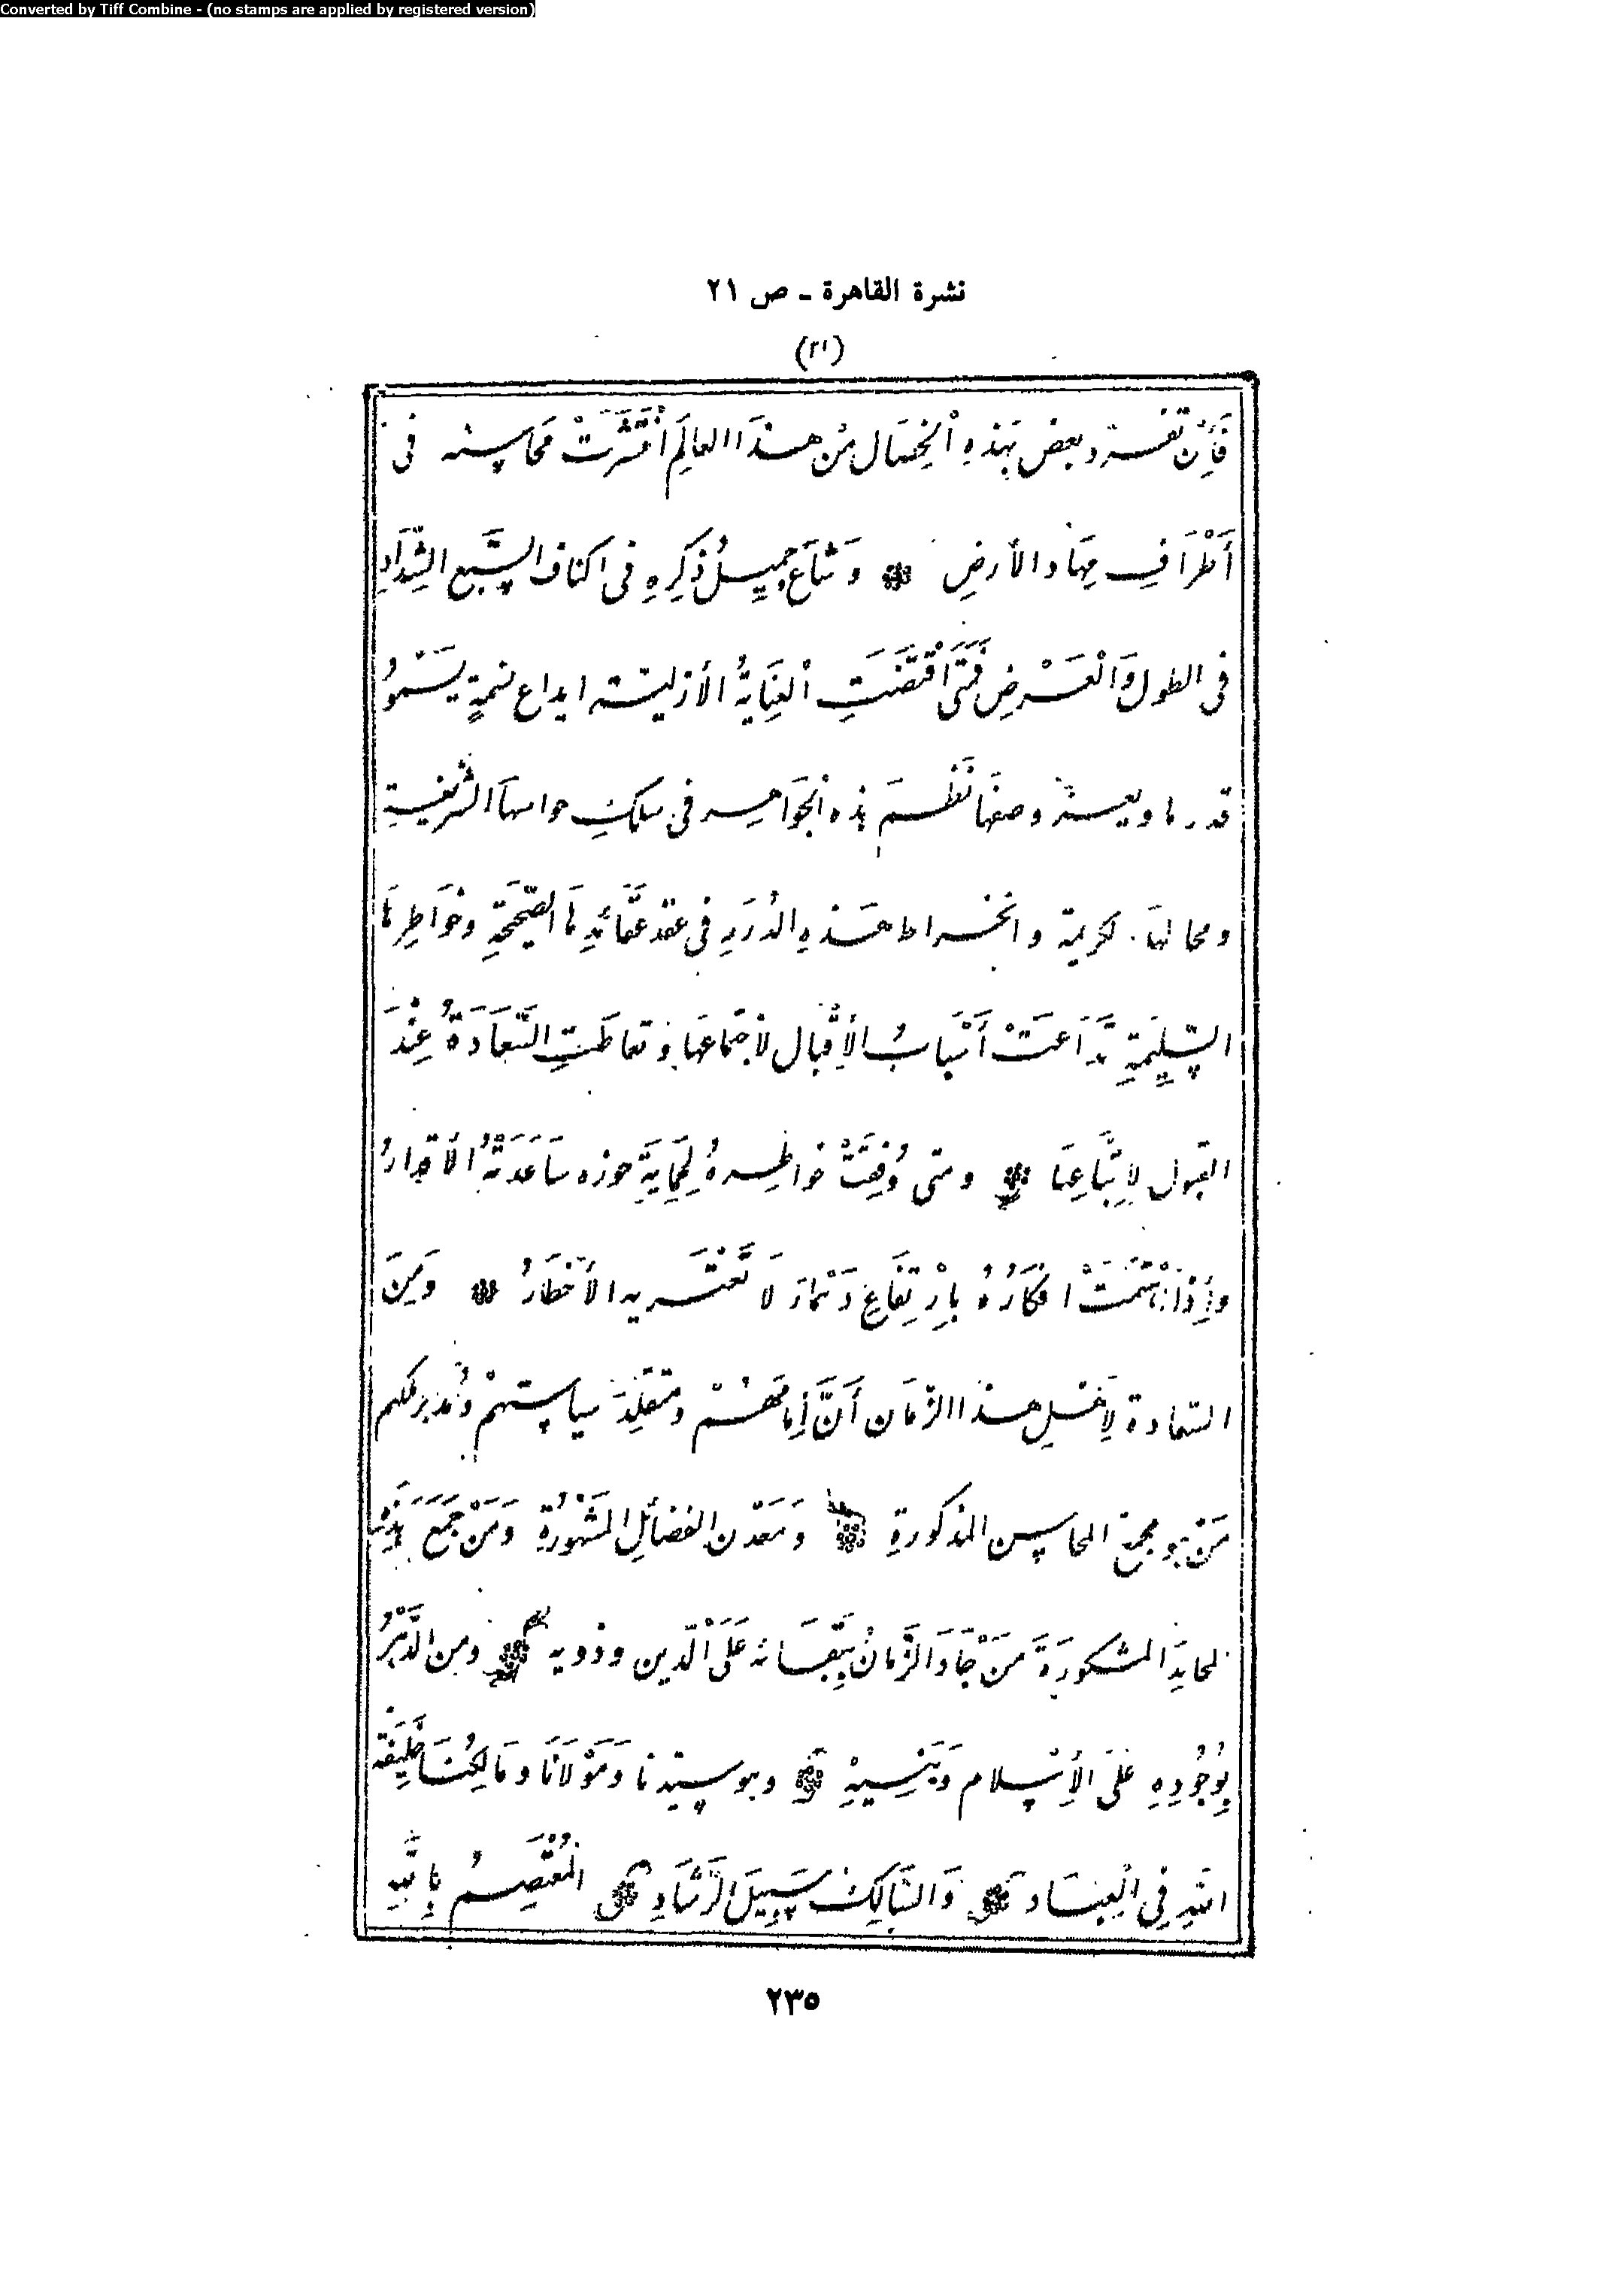 Converted by Tiff Combine - (no stamps are applied by registered version)
نشرة القاهرة ـ ص ٢١
(٢١)
فَإِنْ تفرد بعض بهذِهِ الْخِصَال مِنْ هذَا العالَمِ انْتَشَرَتْ مَحَاسِنه فى
أَطْرَافِ مِهَادِ الأرضِ وَشَاعَ جَمِيلُ ذِكرِهِ فى اكناف السَّبعِ الشِّدَادِ
فى الطول وَالْعَرْضِ فَمَتَى اقْتَضَتِ الْعِنَايَةُ الأزلية ابداع نسمةٍ يَسْمُوُ
قدرها ويعز وصفها نَظْمَ هذه الْجَوَاهِر فى سلكِ حواسها الشريفةِ
ومحالهَا لكريمة وانخراط هَذِهِ الدُرَرِ فى عقد عَقَائِدِهَا الصَّحِيحَةِ وخَوَاطِرِهَا
السَّلِيمَةِ تَدَاعَتْ أَسْبَابُ الأِقْبَال لأجْتماعِهَا وتعاطَتِ السَّعَادَةُ عِنْدَ
القبول لِإتِّبَاعِهَا ومتى وُفِّقَتْ خواطِرهُ لِحِمَايَةِ حوزه سَاعَدَتْهُ الأقدارُ
وإِذَا اهْتَمَّتْ افكَارُهُ بِارْتِفَاعِ ذَمَار لَا تَعْتَريه الأخْطَارُ وَمِنَ
السَّعادة لِأهْلِ هذا الزّمَان أَنَّ إِمَامَهُمْ ومتقَلِّدَ سياستِهمْ وَمُدبر ملكهم
مَنْ هو مجمع المحاسِن المذكورةِ وَمَعْدَن الفضائِلِ الْمَشْهُورَةِ وَمَنْ جَمَعَ بَيْنَ
لمحامِدَ المشكورَةَ مَنْ جَادَ الزَّمَانُ بِبَقَائه عَلَى الْدّين وذويه ومن الدَّهْرُ
بِوُجُودِهِ عَلَى الأِسْلام وَبَنِيهِ وهو سيّدنا وَمَوْلَانَا وَمَالِكُنَا خَلِيفَة
اللهِ فِى الْعِبَاد وَالسَّالِكُ سَبِيلَ الرَّشَادِ الْمُعْتَصِمُ بِاللهِ
٢٣٥